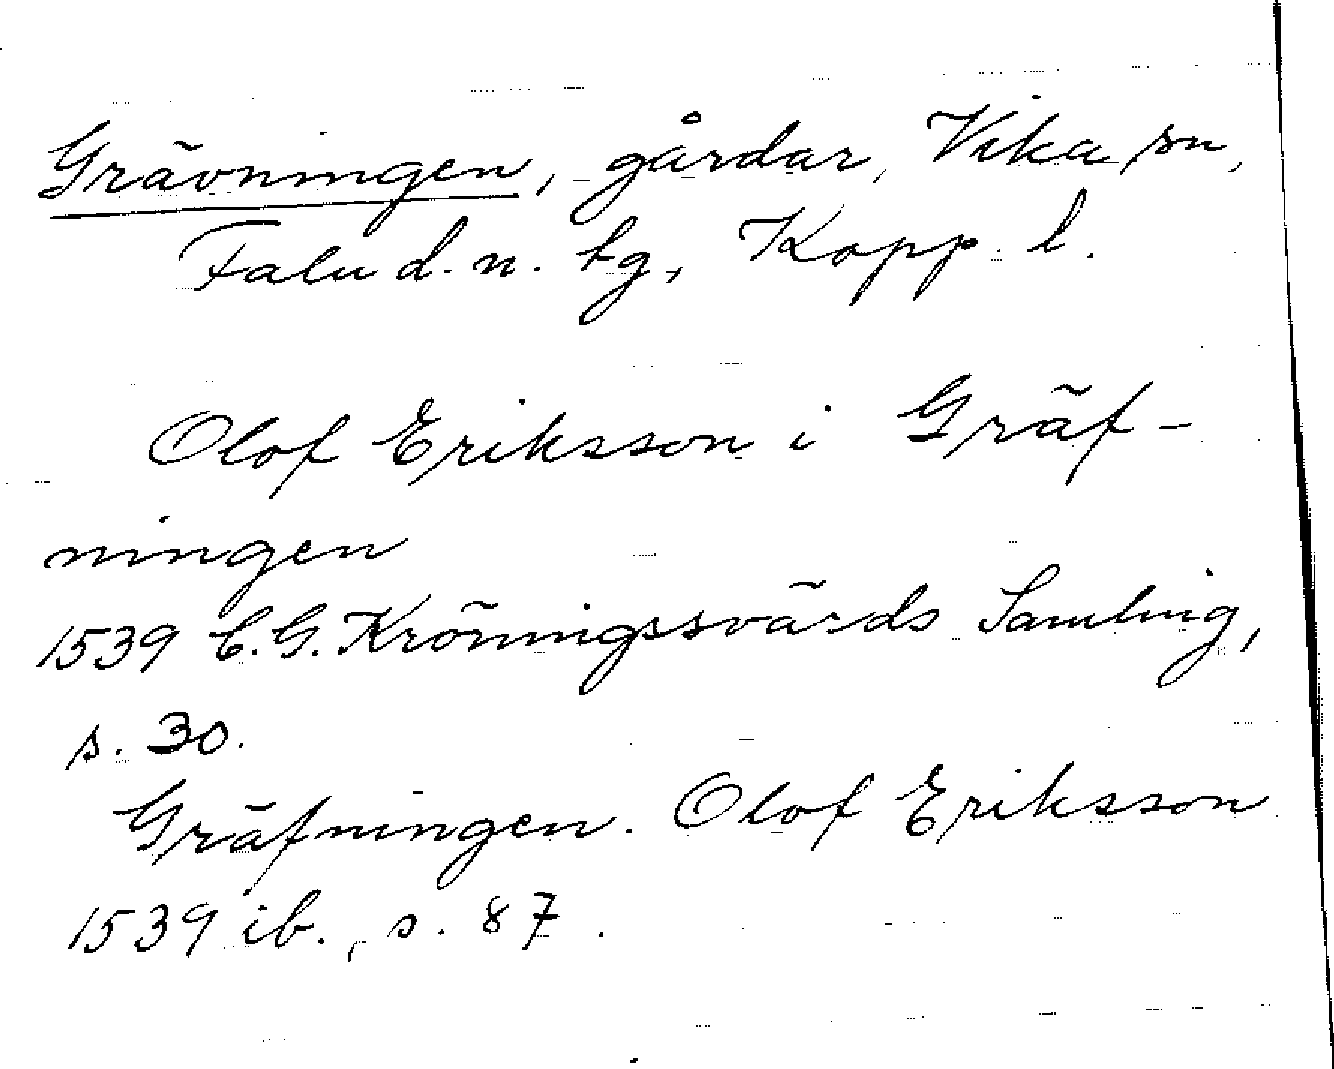 Grävningen, gårdar, Vika sn,
Falu d. n. tg, Kopp. l.
Olof Eriksson i Gräf-
ningen
1539 C. G. Kröningssvärds Samling,
s. 30.
Gräfningen. Olof Eriksson
1539 ib., s. 87.